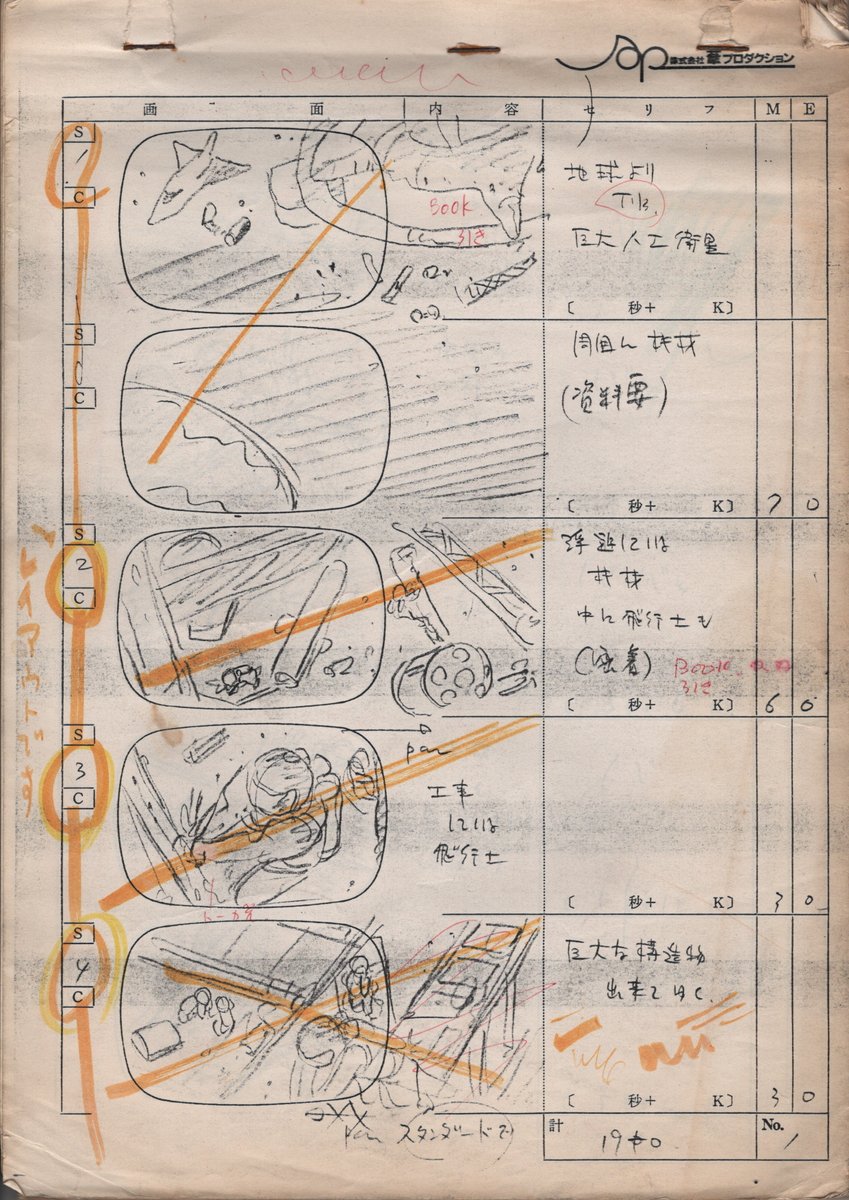 株式会社 葦プロダクション
画 面 内 容 セ リ フ M E
S
1
C
BOOK
引き
地球より
T.B.
巨大人工衛星
〔 秒+ K〕
S
C
(資料要)
〔 秒+ K〕 7 0
S
2
C
材
中に飛行士も
BOOK
引き
〔 秒+ K〕 6 0
レイアウトです
S
3
C
pan
工事
している
飛行士
〔 秒+ K〕 3 0
S
4
C
巨大な構造物
出来てゆく
〔 秒+ K〕 3 0
pan スタンダード
計 19+0
No. 1